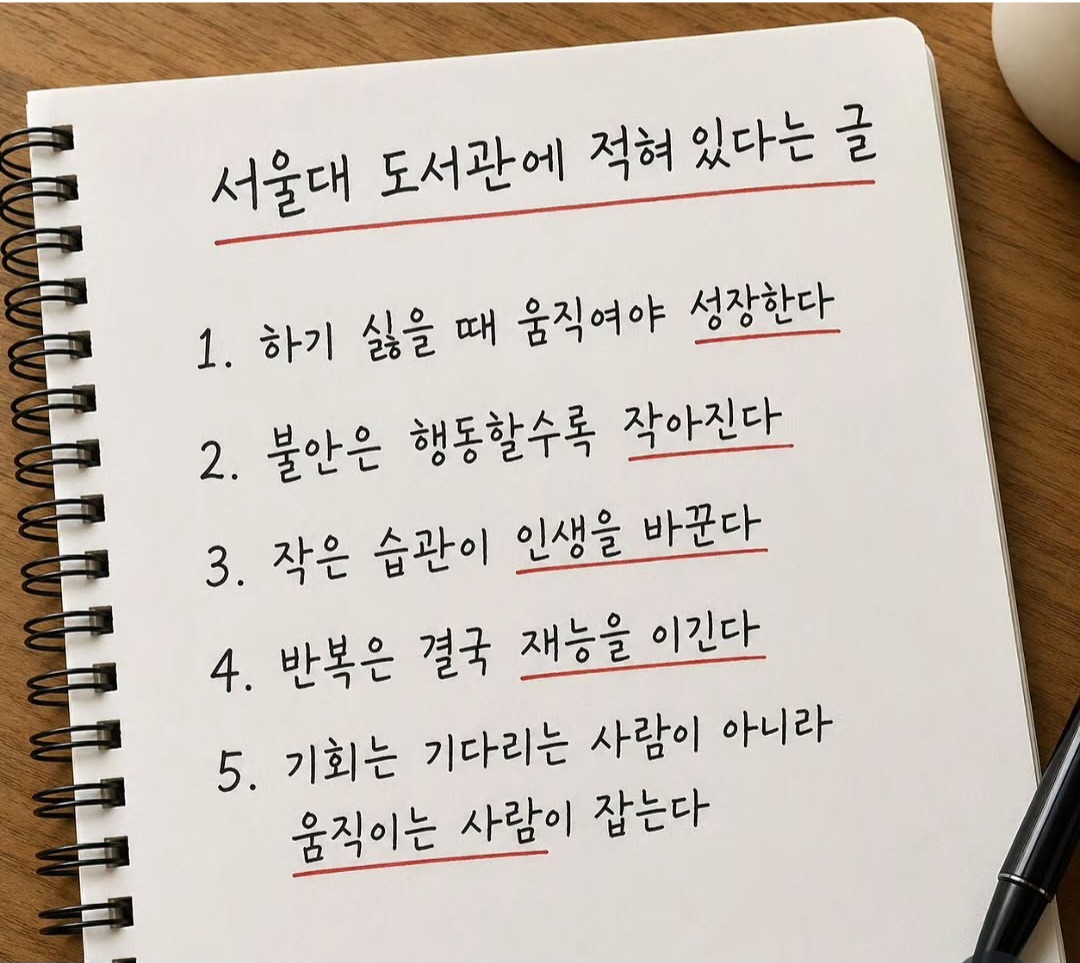 서울대 도서관에 적혀 있다는 글
1. 하기 싫을 때 움직여야 성장한다
2. 불안은 행동할수록 작아진다
3. 작은 습관이 인생을 바꾼다
4. 반복은 결국 재능을 이긴다
5. 기회는 기다리는 사람이 아니라
움직이는 사람이 잡는다